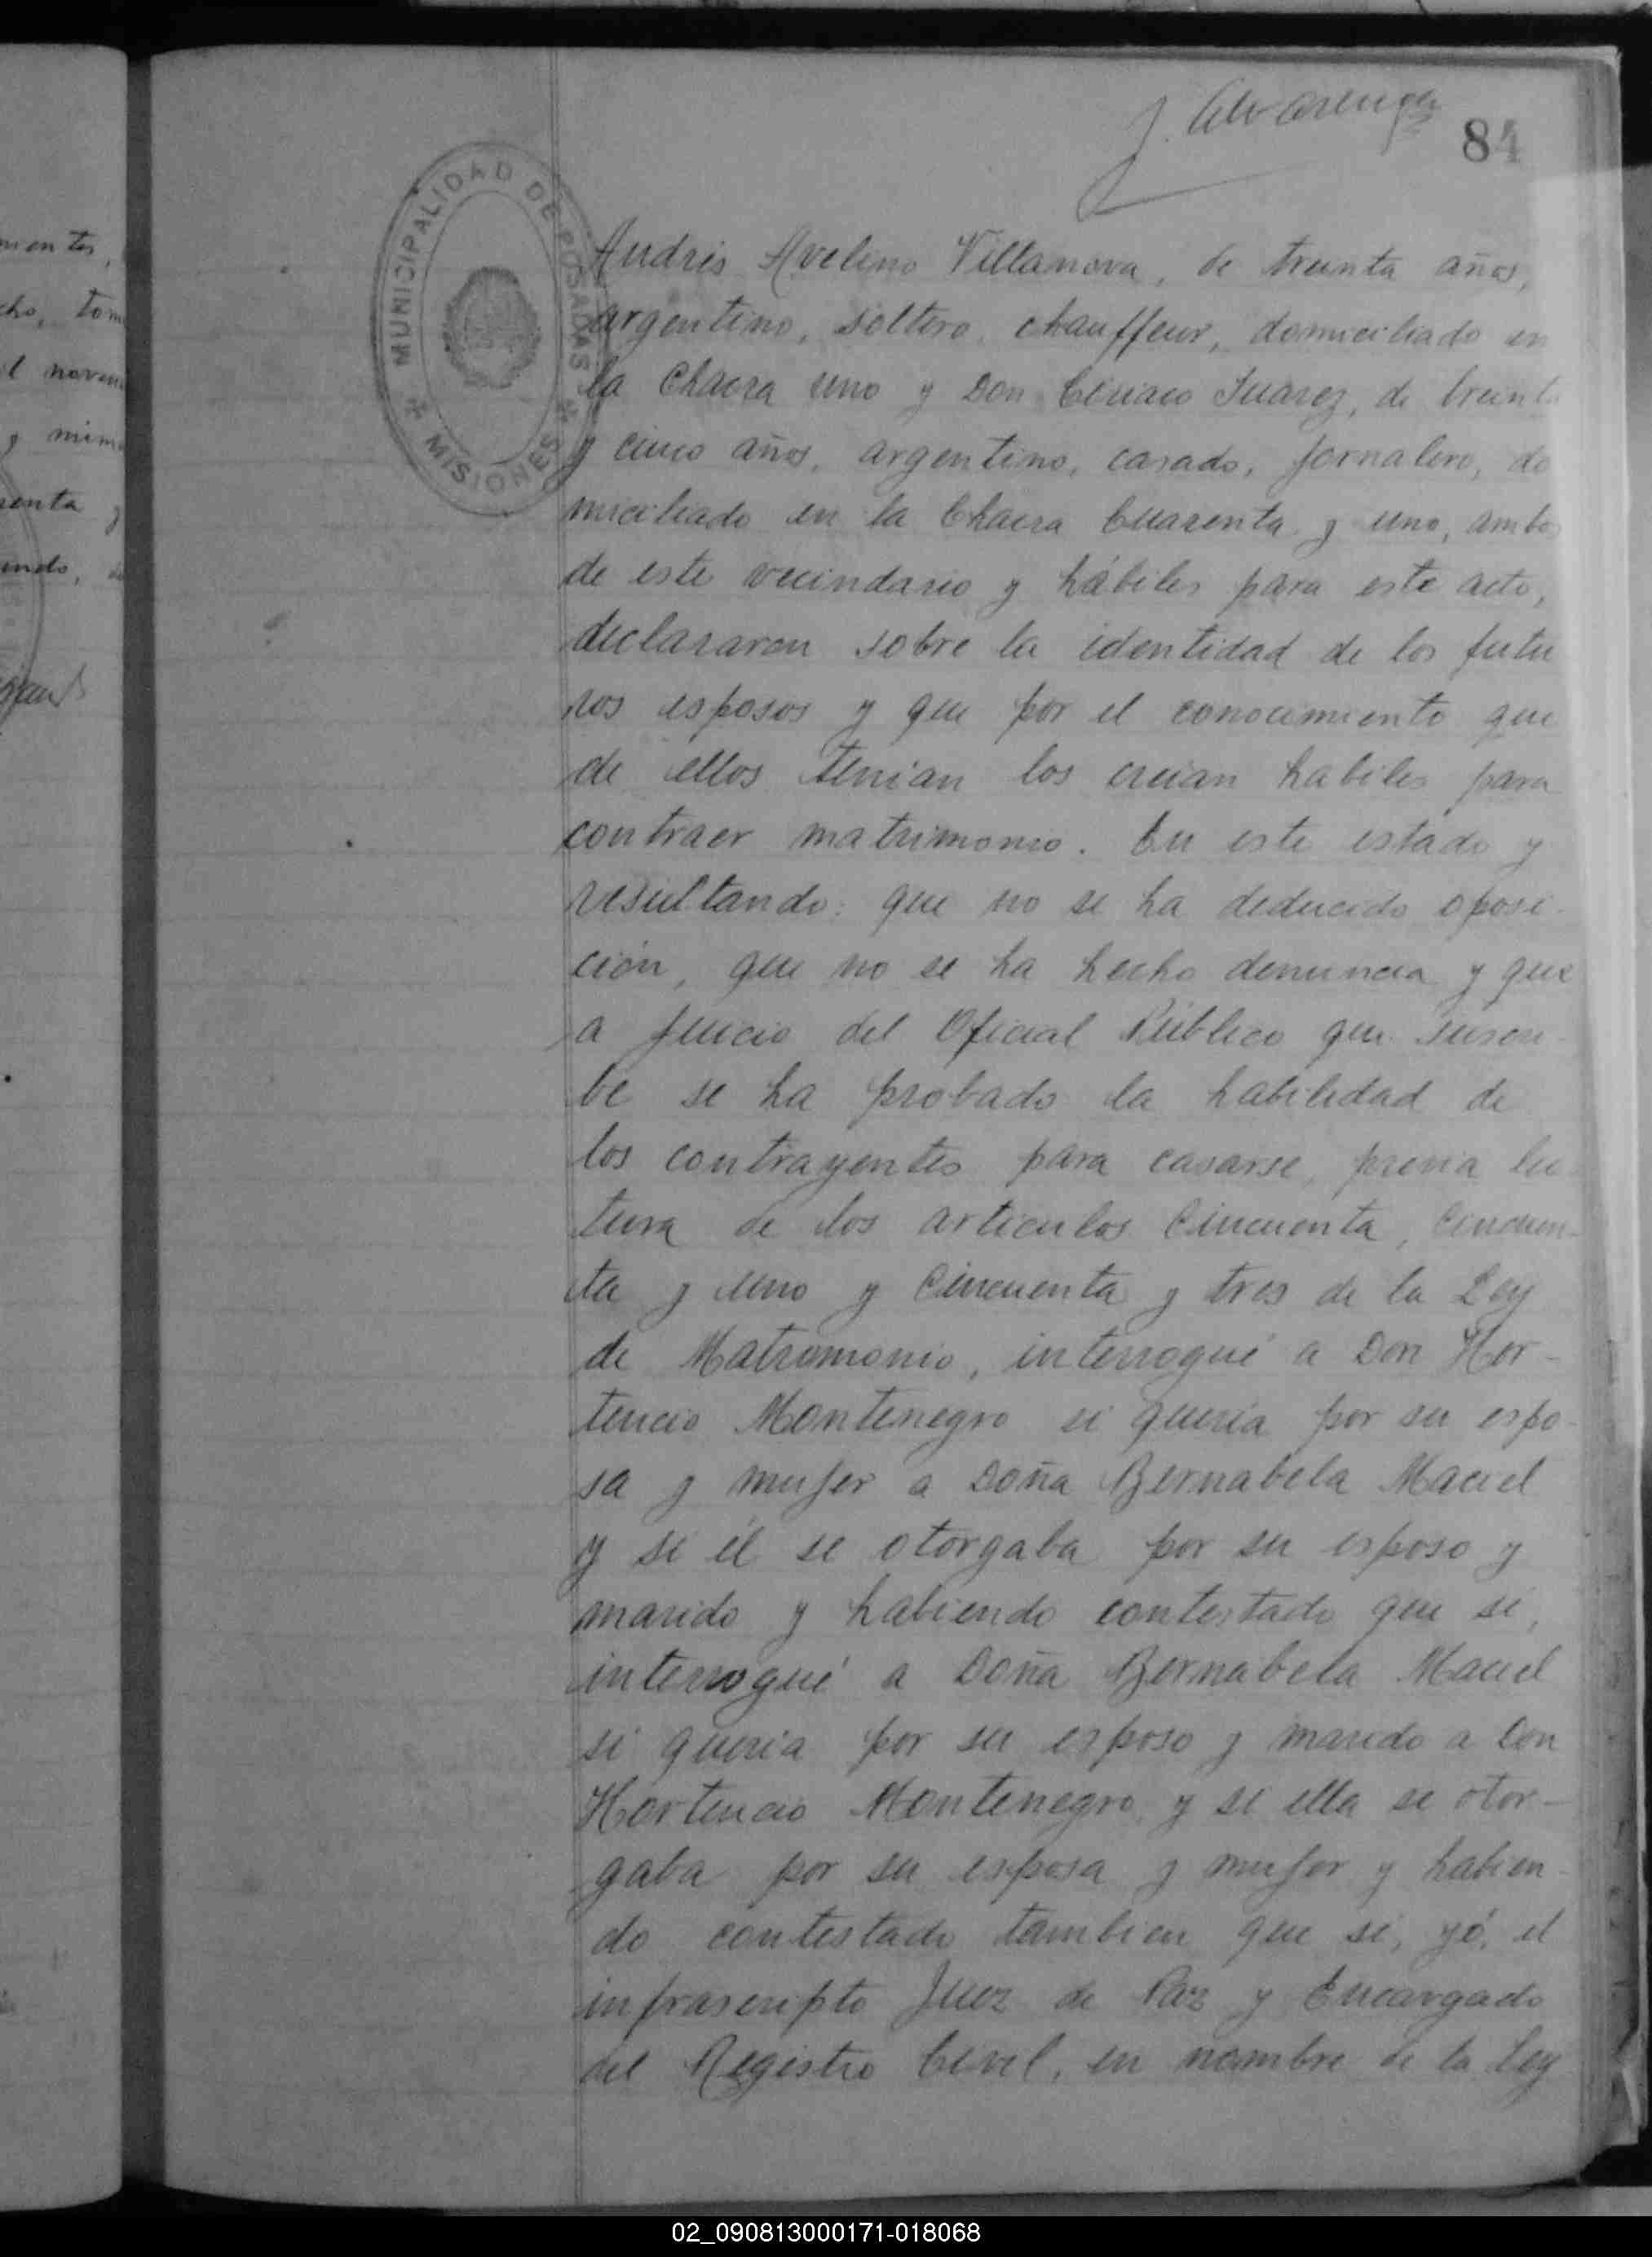 J. Alvarenga
84
MUNICIPALIDAD DE POSADAS
MISIONES
Andrés Avelino Villanova, de treinta años,
argentino, soltero, chauffeur, domiciliado en
la Chacra uno y Don Ciriaco Juarez, de treinta
y cinco años, argentino, casado, jornalero, do
miciliado en la Chacra Cuarenta y uno, ambos
de este vecindario y hábiles para este acto,
declararon sobre la identidad de los futu
ros esposos y que por el conocimiento que
de ellos tenian los creian habiles para
contraer matrimonio. En este estado y
resultando: que no se ha deducido oposi-
ción, que no se ha hecho denuncia y que
a juicio del Oficial Público que suscri-
be se ha probado la habilidad de
los contrayentes para casarse, previa lec
tura de los articulos Cincuenta, Cincuen-
ta y uno y Cincuenta y tres de la Ley
de Matrimonio, interrogué a Don Hor-
tencio Montenegro si queria por su espo-
sa y mujer a Doña Bernabela Maciel
y si él se otorgaba por su esposo y
marido y habiendo contestado que si,
interrogué a Doña Bernabela Maciel
si queria por su esposo y marido a Don
Hortencio Montenegro y si ella se otor-
gaba por su esposa y mujer y habien-
do contestado tambien que si, yó, el
infrascripto Juez de Paz y Encargado
del Registro Civil, en nombre de la Ley
02_090813000171-018068